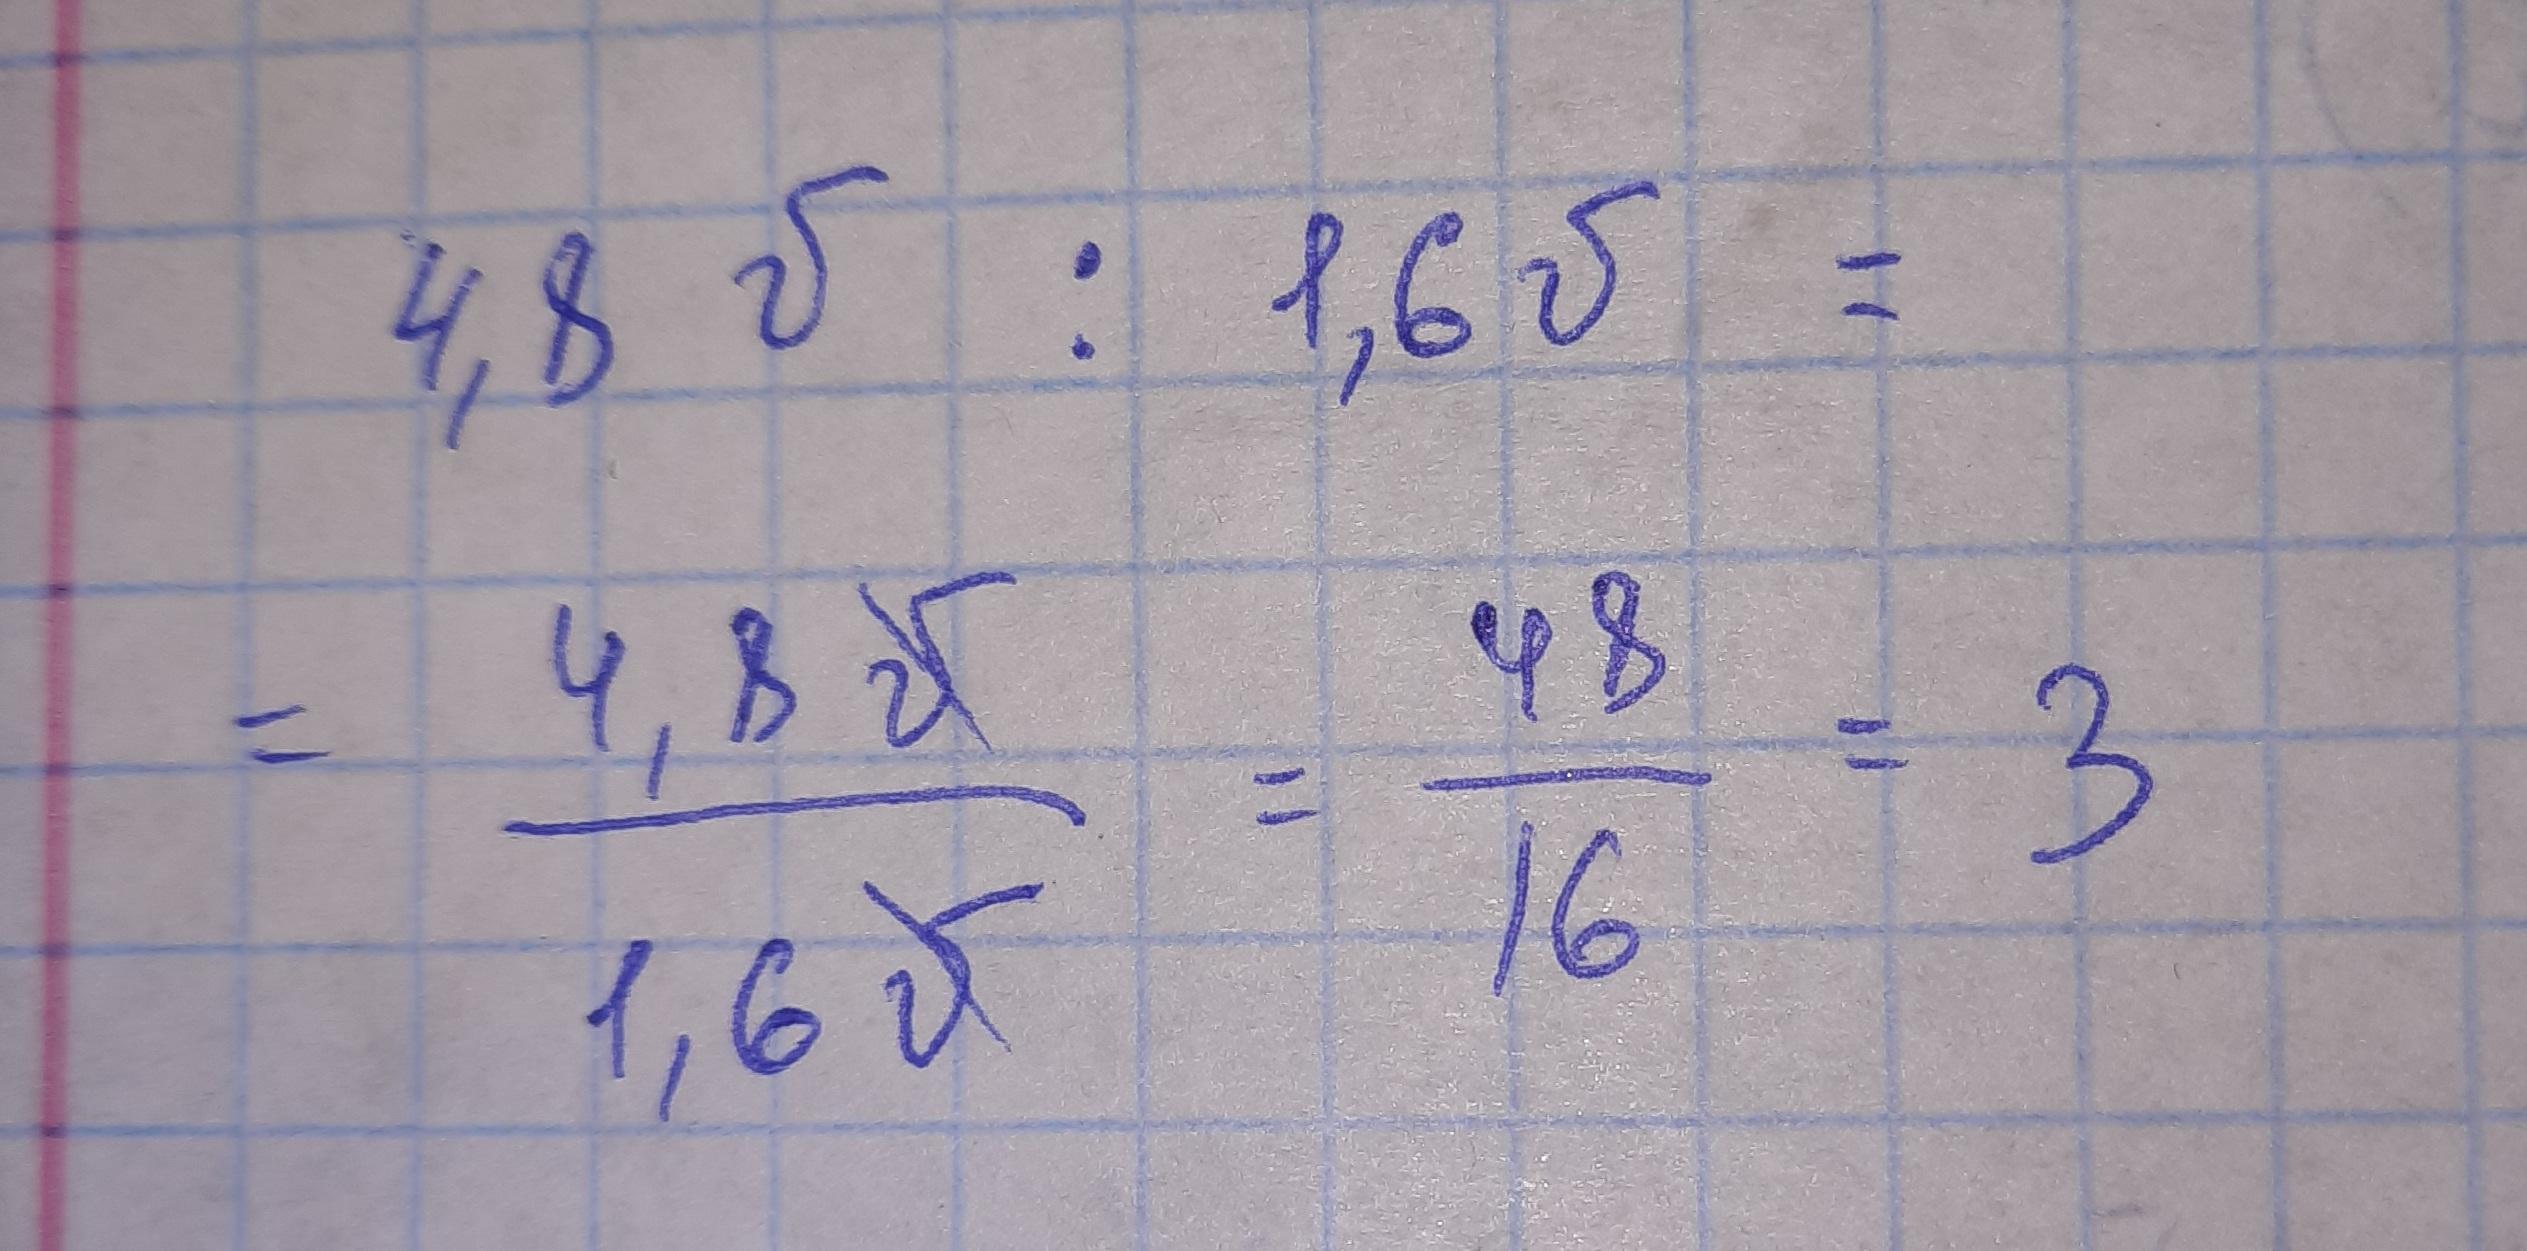 4,8 v : 1,6 v =
= 4,8 v / 1,6 v = 48 / 16 = 3